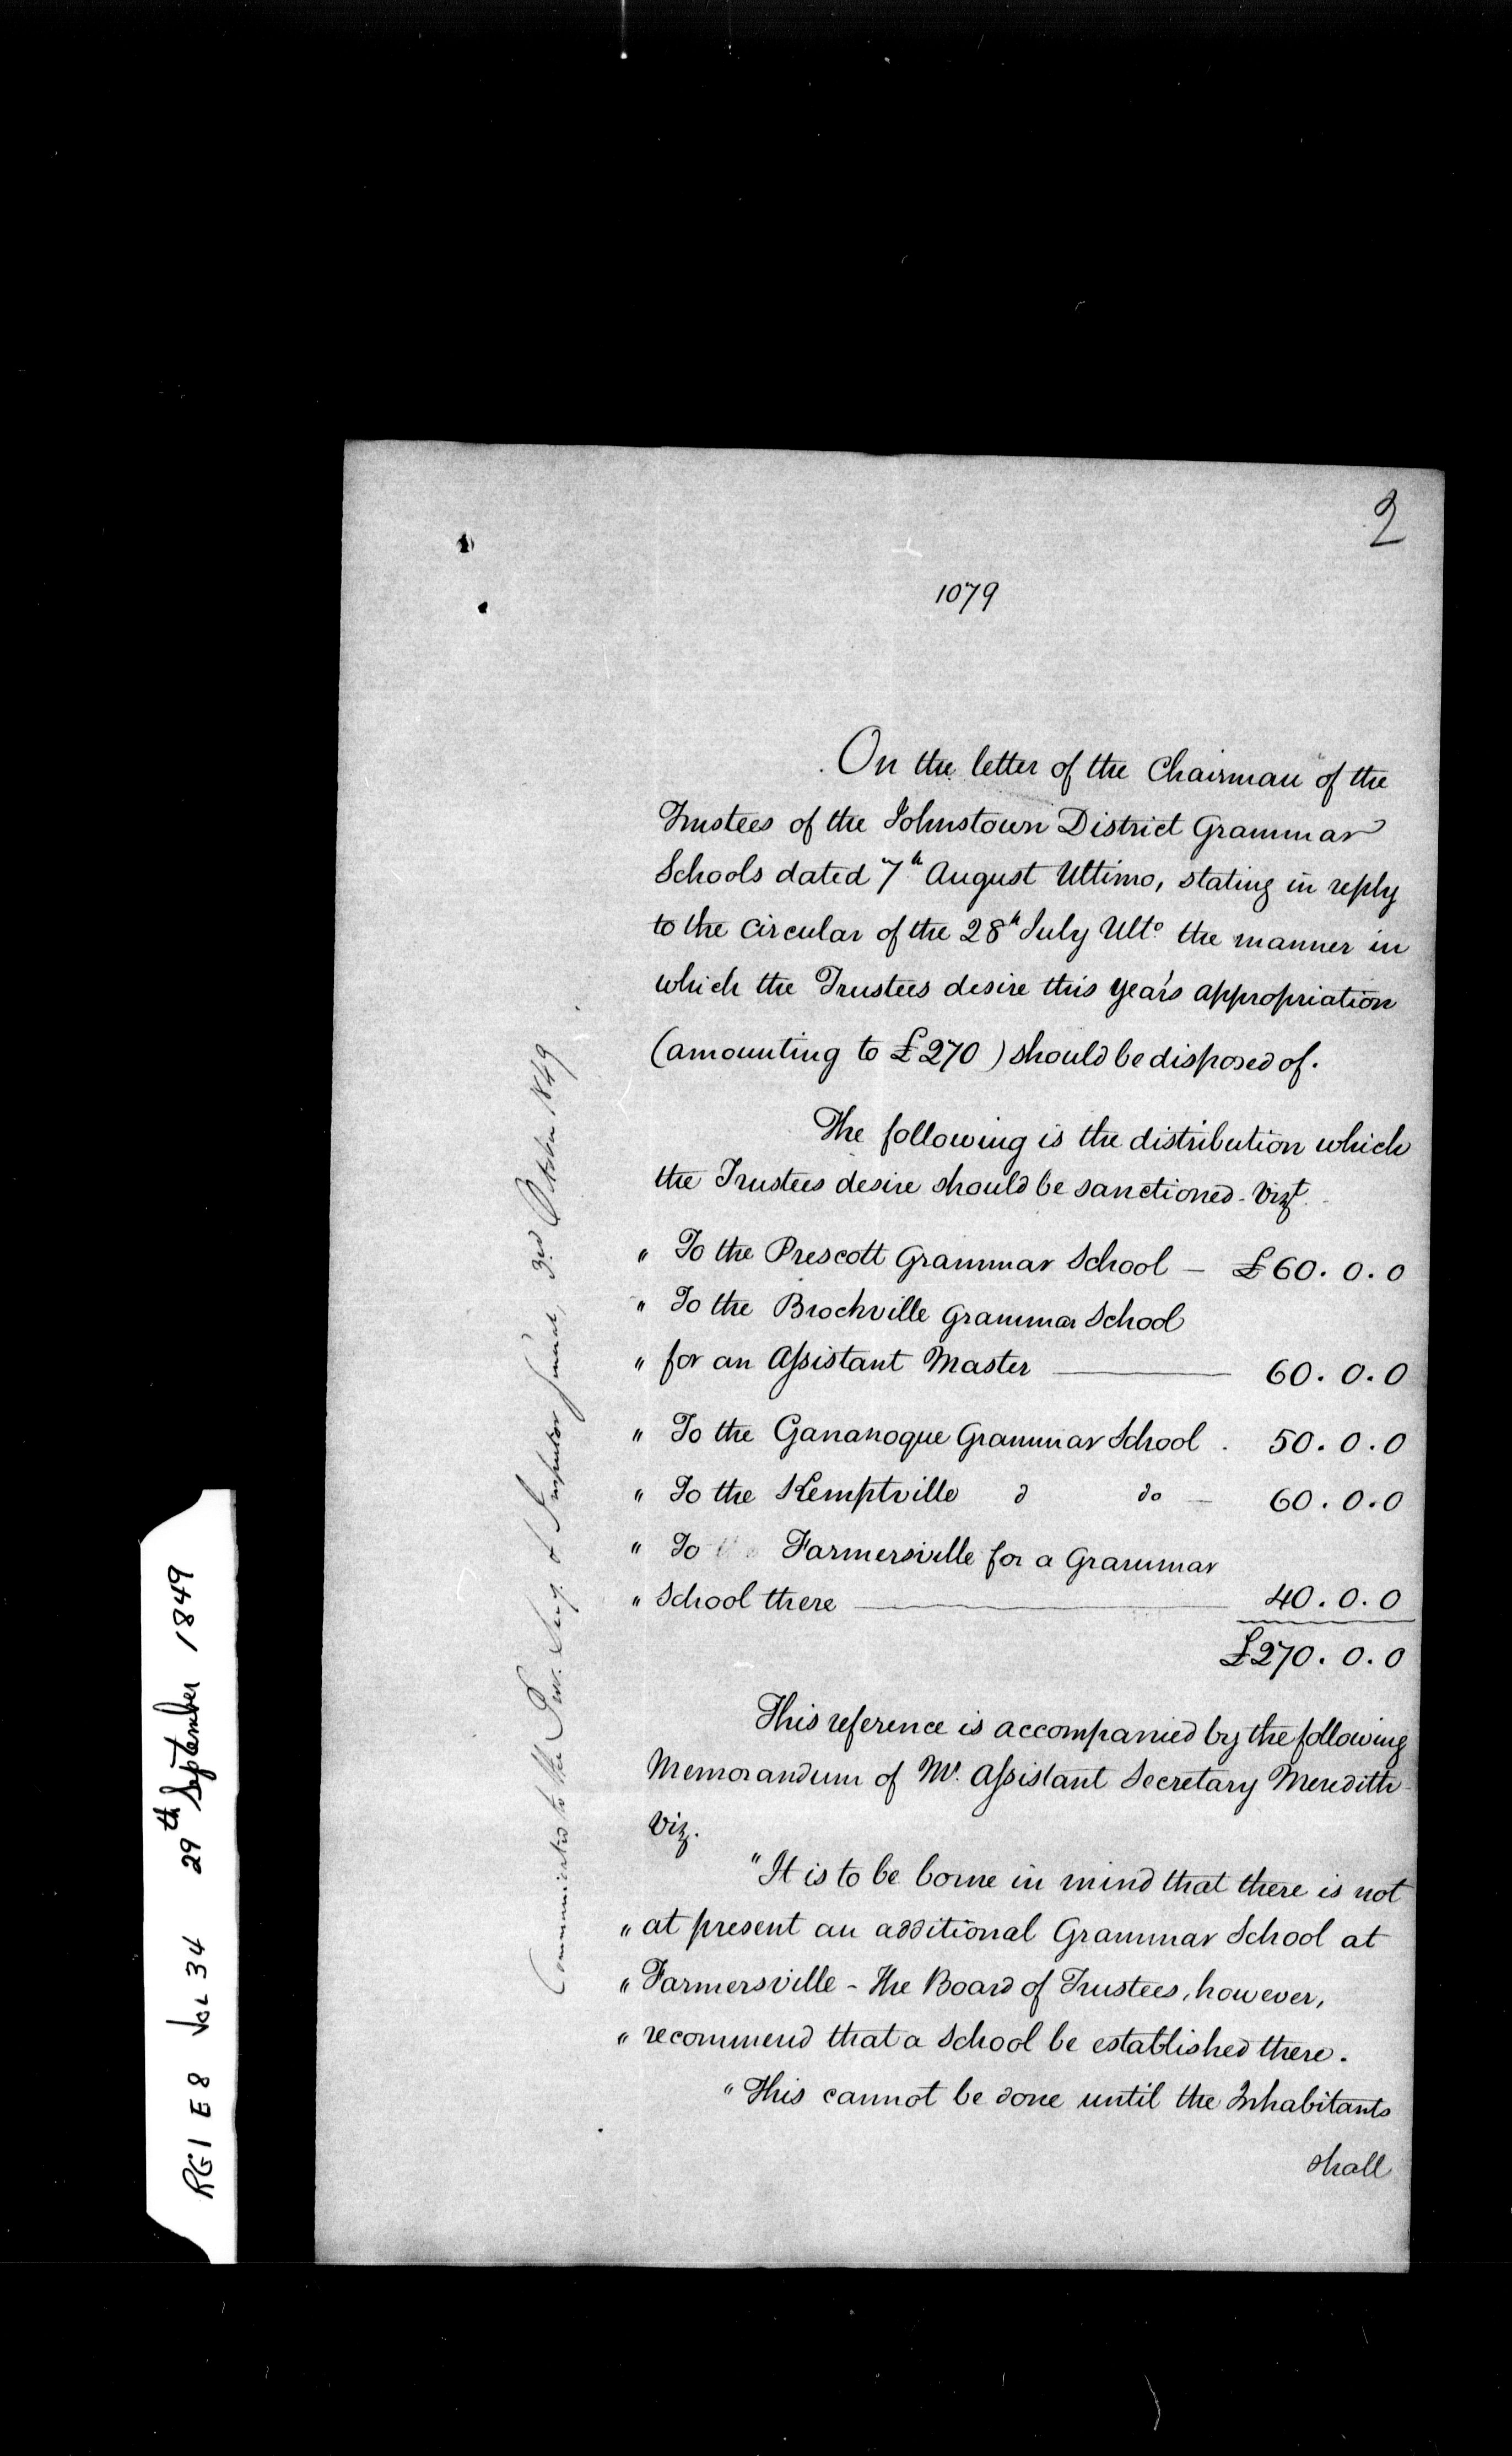 2
1079
On the letter of the Chairman of the
Trustees of the Johnstown District Grammar
Schools dated 7th August Ultimo, stating in reply
to the Circular of the 28th July Ulto the manner in
which the Trustees desire this year's appropriation
(amounting to £270) should be disposed of.
The following is the distribution which
the Trustees desire should be sanctioned - Vizt.
" To the Prescott Grammar School — £60. 0. 0
" To the Brockville Grammar School
" for an Assistant Master — 60. 0. 0
" To the Gananoque Grammar School . 50. 0. 0
" To the Kemptville do do — 60. 0. 0
" To Farmersville for a Grammar
" School there — 40. 0. 0
£270. 0. 0
This reference is accompanied by the following
Memorandum of Mr. Assistant Secretary Meredith
Viz.
"It is to be borne in mind that there is not
" at present an additional Grammar School at
" Farmersville - The Board of Trustees, however,
" recommend that a School be established there.
"This cannot be done until the Inhabitants
shall
Communicated to the Prov. Secy. & Inspector General, 3rd October 1849
RG1 E8 Vol 34 29th September 1849